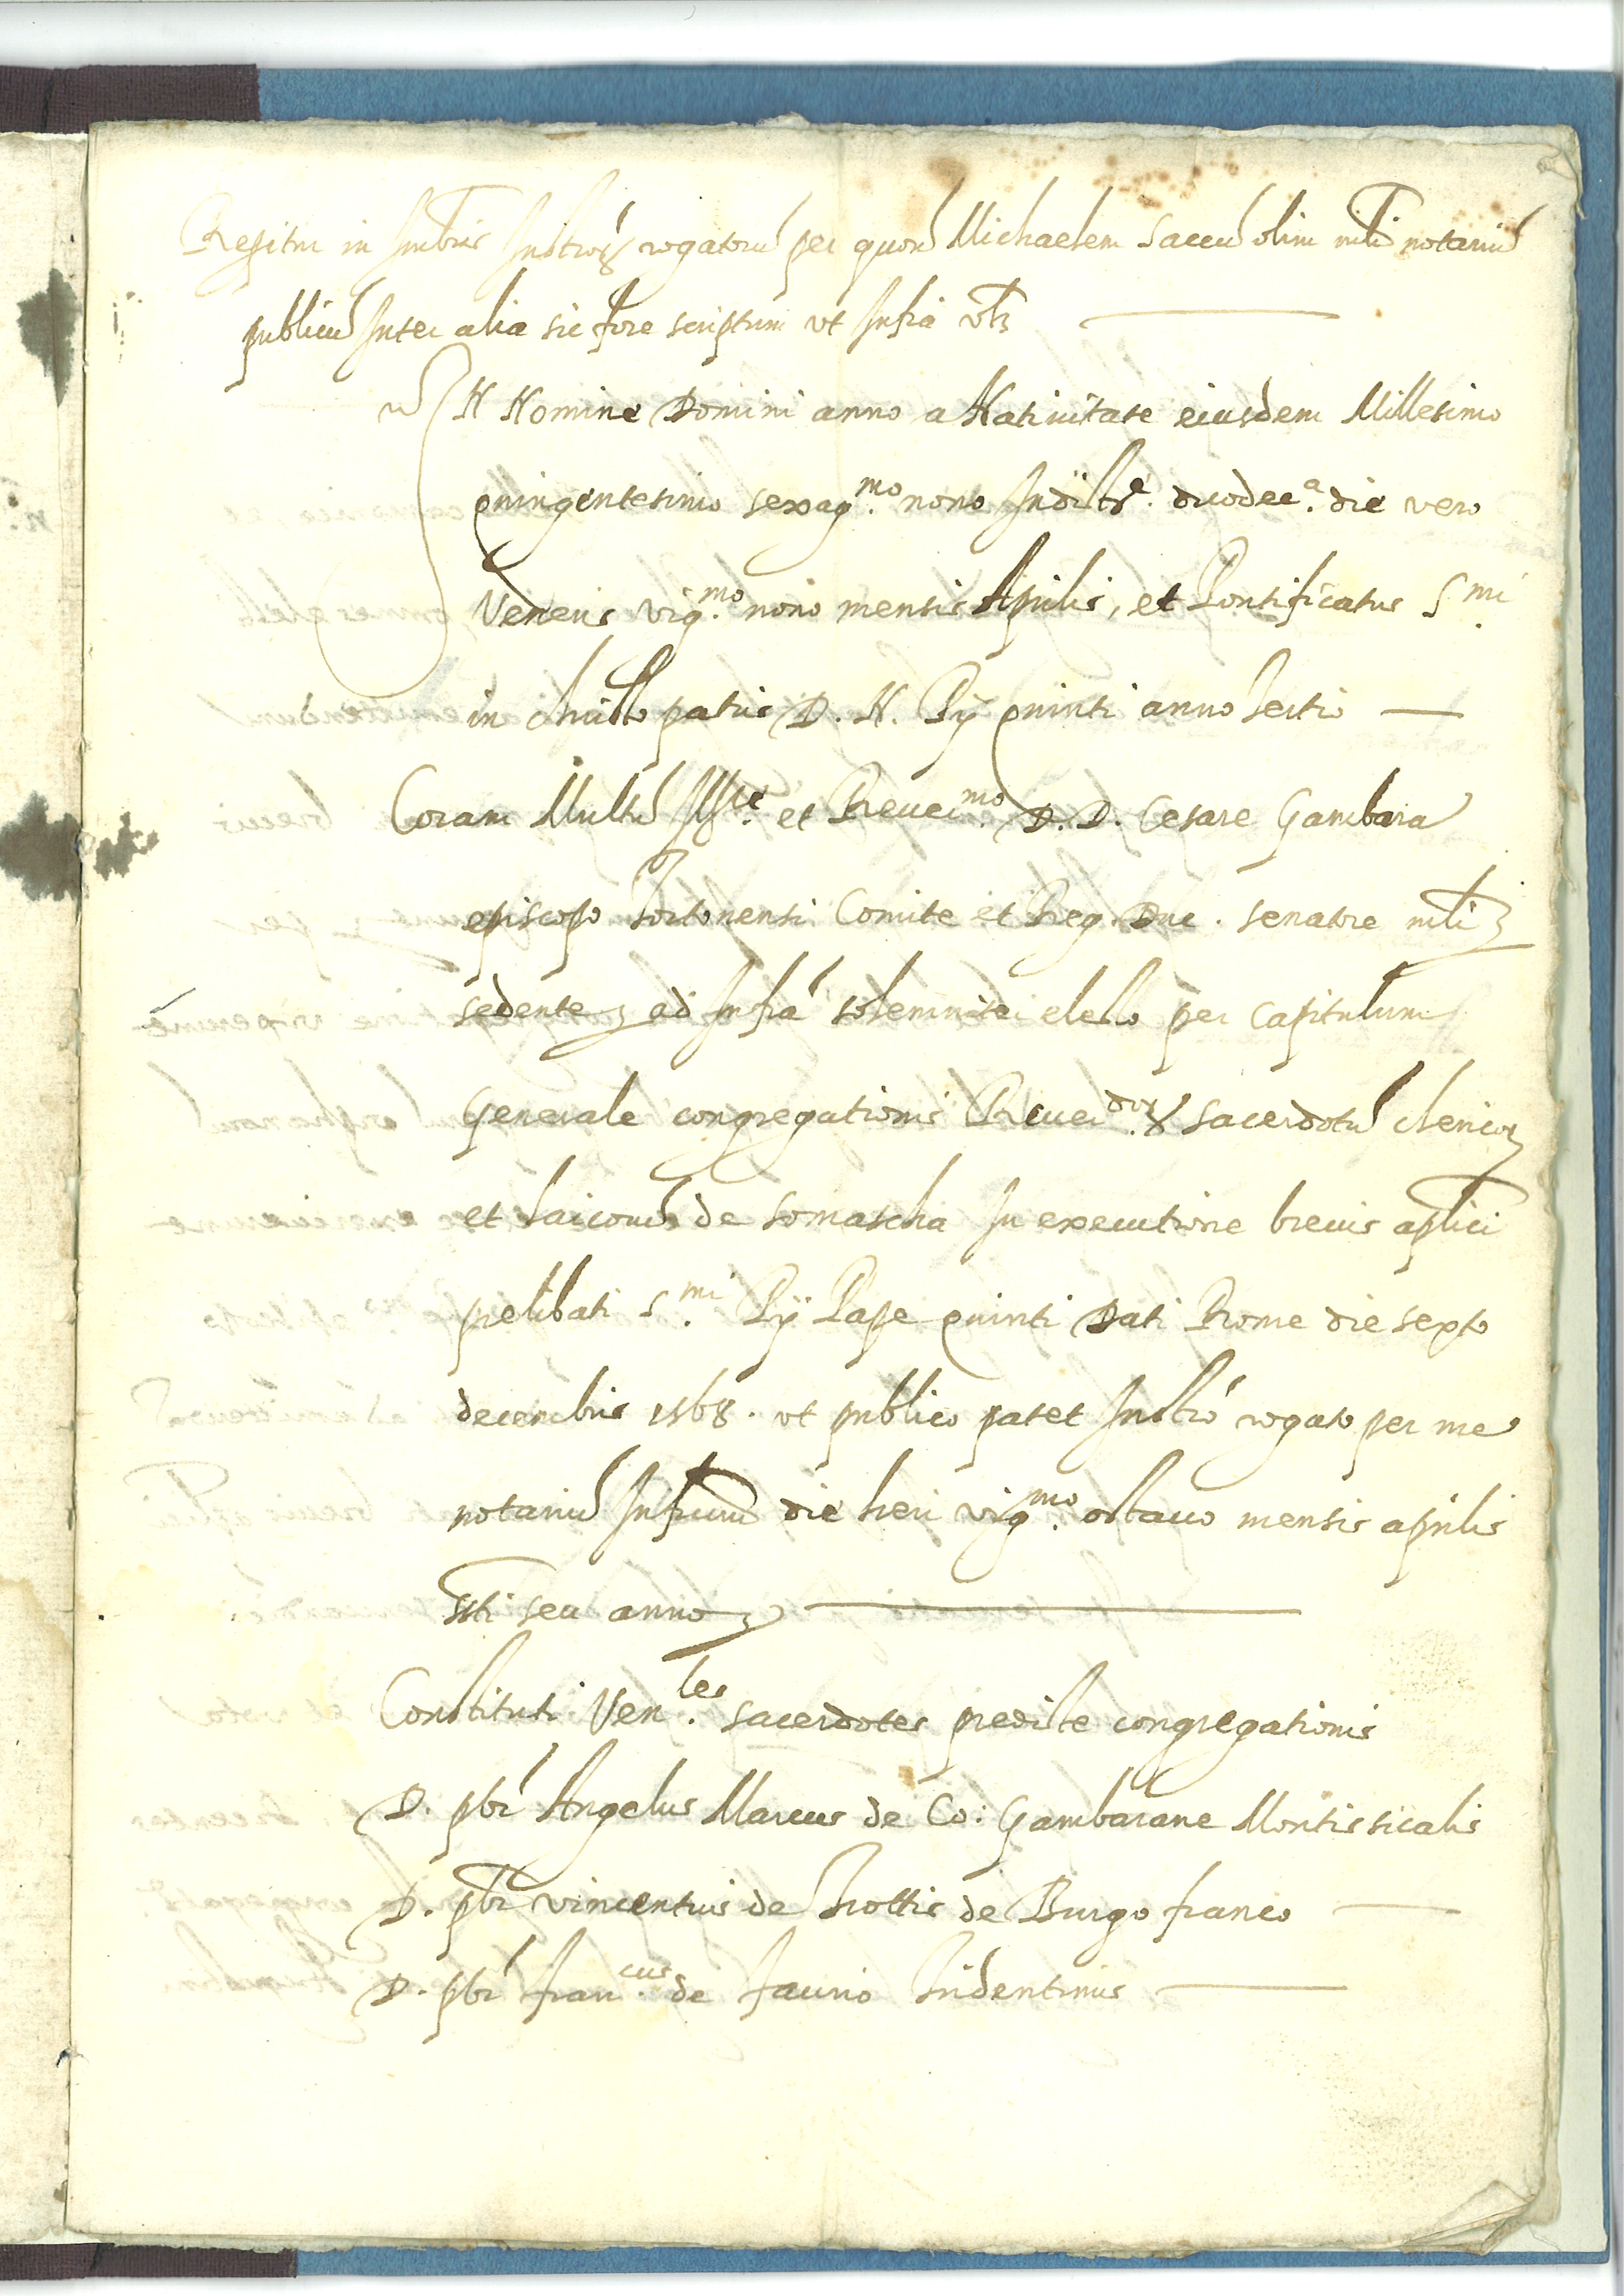 Repitur in Imbris Instror rogatorū per quon Michaelem Saccū olim mlī notariū
publicū Inter alia sic fore scriptum vt Infrà vtz
IN Nomine Domini anno a Natiuitate eiusdem Millesimo
quingentesimo sexag.mo nono Indict.e duodec.a die vero
Veneris vig.mo nono mensis Aprilis, et Pontificatus S.mi
in christo patris D. N. Pij quinti anno Sertio
Coram Multū Ill.re et Reuer.mo D. D. Cesare Gambara
episcopo Tortonensi Comite et Reg. Duc. senatore mlī
sedente ad Infrà solemniter electo per Capitulum
Generale congregationis Reuer.dor sacerdotū clericor
et Laicorū de somascha In executione breuis aplici
prelibati S.mi Pij Pape quinti Dati Rome die sexto
decembris 1568. vt publico patet Instrò rogato per me
notariū Infrum die heri vig.mo octauo mensis aprilis
sstī seu anno
Constituti Ven.les sacerdotes predicte congregationis
D. pbr Angelus Marcus de Co: Gambarane Montis sicalis
D. pbr vincentius de Trottis de Burgo franco
D. pbr fran.cus de faurio Tridentinus